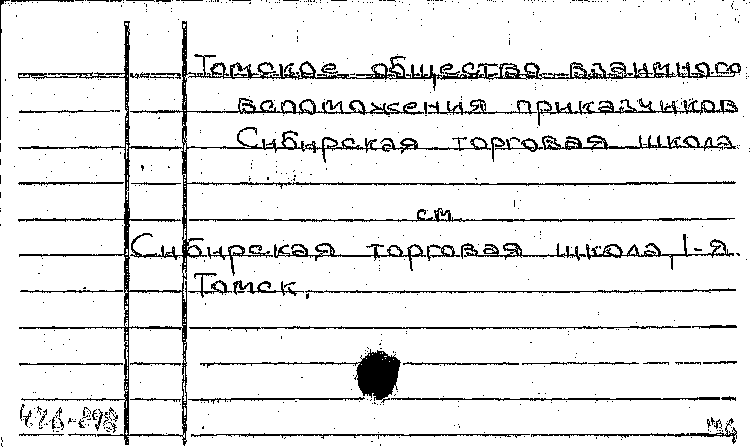 Томское общество взаимного
вспоможения приказчиков
Сибирская торговая школа
см.
Сибирская торговая школа, 1-я.
Томск.